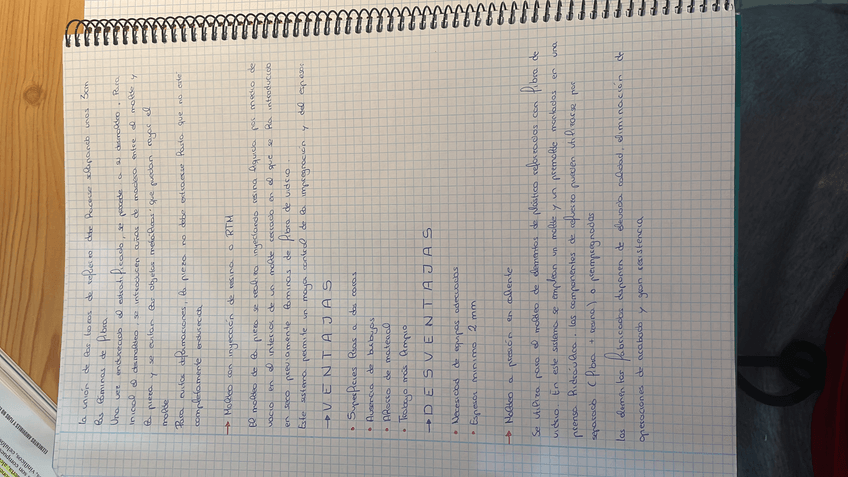 la unión de los trozos de refuerzo debe hacerse solapando unos 3cm
las láminas de fibra.
Una vez endurecido el estratificado, se procede a su demoldeo. Para
iniciar el demoldeo se introducen cuñas de madera entre el molde y
la pieza y se evitan los objetos metálicos que puedan rayar el
molde.
Para evitar deformaciones, la pieza no debe extraerse hasta que no esté
completamente endurecida
→ Moldeo con inyección de resina o RTM
El moldeo de la pieza se realiza inyectando resina líquida por medio de
vacío en el interior de un molde cerrado en el que se ha introducido
en seco previamente láminas de fibra de vidrio.
Este sistema permite un mayor control de la impregnación y del espesor
→ VENTAJAS
• Superficies lisas a dos caras
• Ausencia de burbujas
• Ahorro de material
• Trabajo más limpio
→ DESVENTAJAS
• Necesidad de equipos adecuados
• Espesor mínimo 2 mm
→ Moldeo a presión en caliente
Se utiliza para el moldeo de elementos de plástico reforzados con fibra de
vidrio. En este sistema se emplean un molde y un premolde montados en una
prensa hidráulica. los componentes de refuerzo pueden utilizarse por
separado (fibra + resina) o preimpregnados
los elementos fabricados disponen de elevada calidad, eliminación de
operaciones de acabado y gran resistencia
ELEMENTOS AMOVIBLES Y FIJOS NO